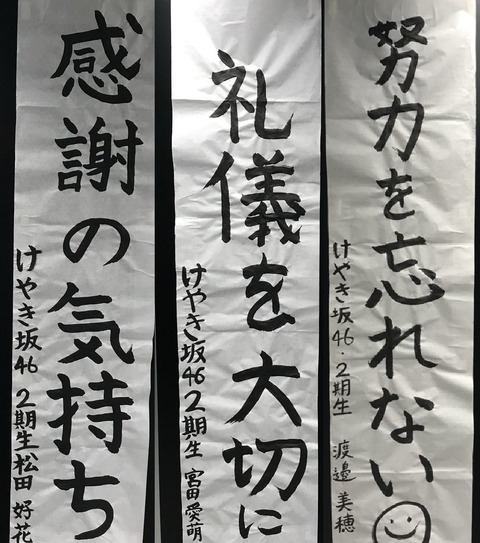 努力を忘れない
けやき坂46・2期生 渡邊美穂
礼儀を大切に
けやき坂46 2期生 宮田愛萌
感謝の気持ち
けやき坂46 2期生 松田好花